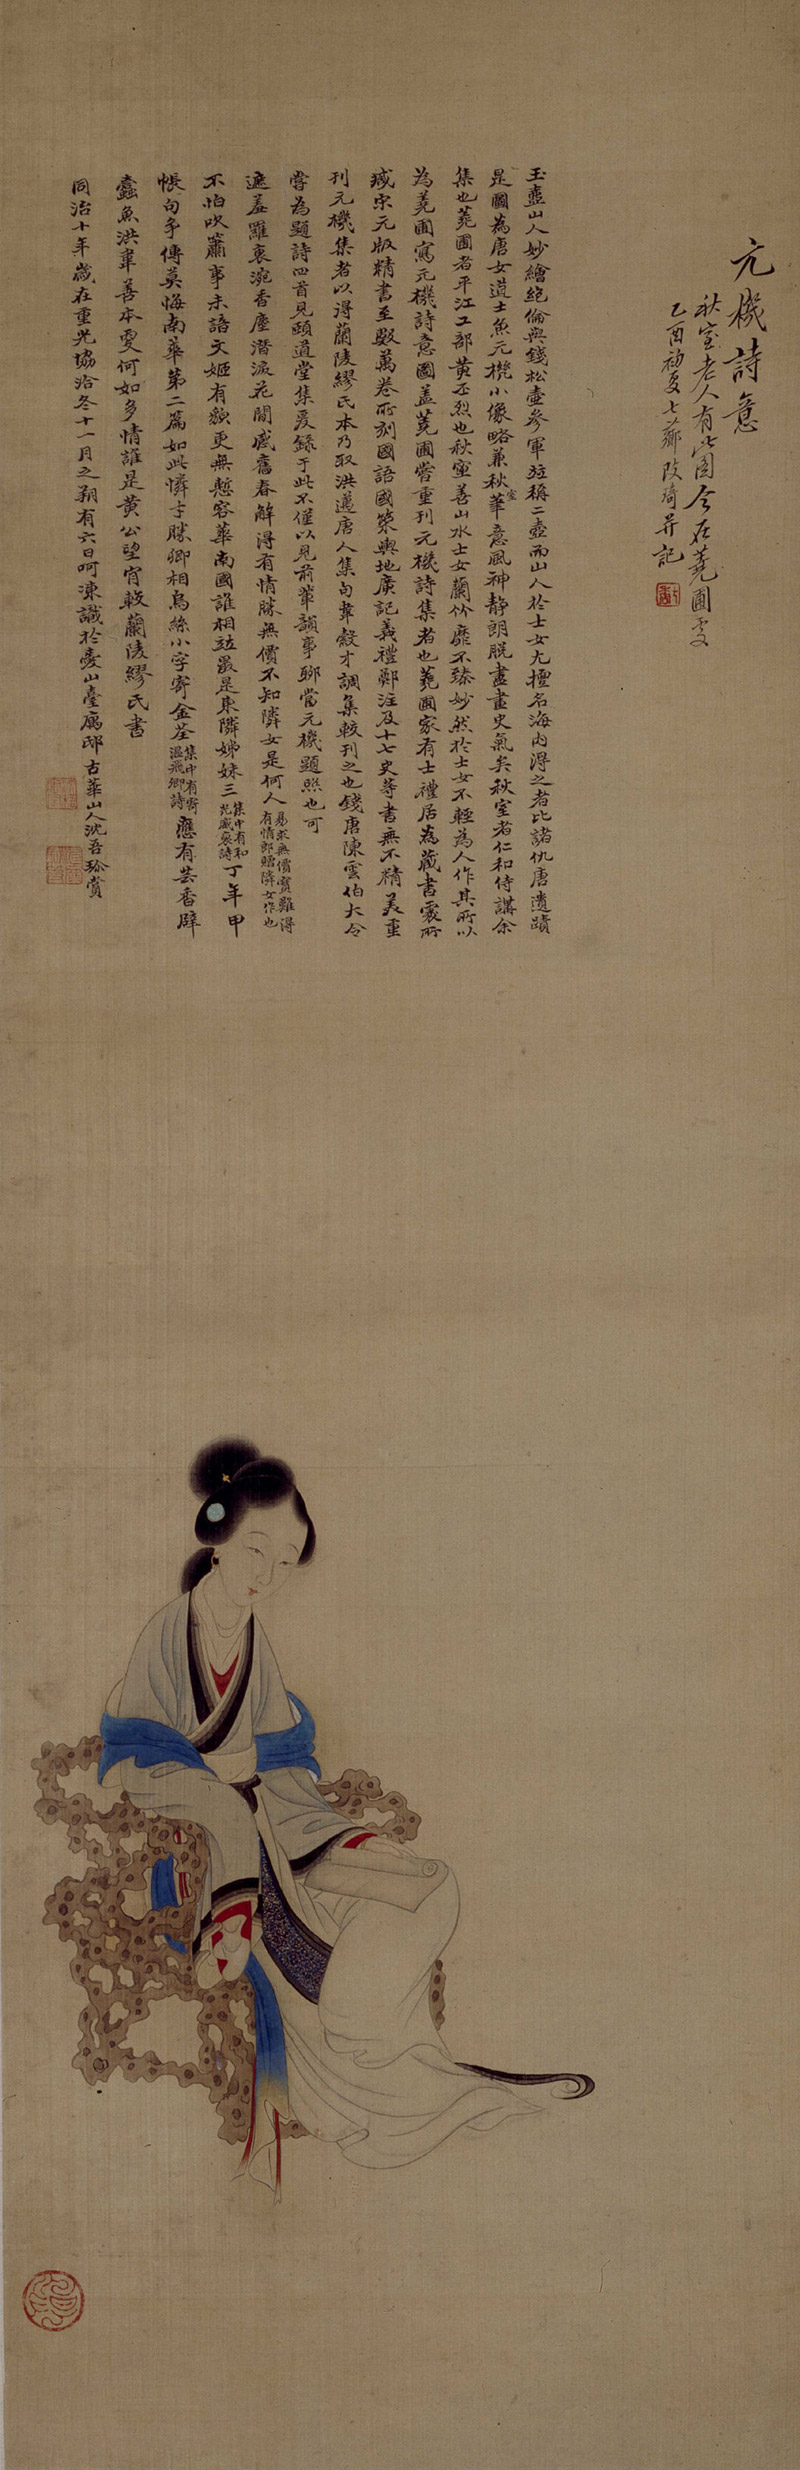 元機詩意
秋室老人有此圖今在蕘圃處
乙酉初夏七薌改琦并記
玉壺山人妙繪絕倫與錢松壺參軍竝稱二壺而山人於士女尤擅名海內得之者比諸仇唐遺蹟
是圖為唐女道士魚元機小像略兼秋室華意風神静朗脫盡畫史氣矣秋室者仁和侍講余
集也蕘圃者平江工部黃丕烈也秋室善山水士女蘭竹靡不臻妙然於士女不輕為人作其所以
為蕘圃寫元機詩意圖蓋蕘圃嘗重刊元機詩集者也蕘圃家有士禮居為藏書處所
臧宋元版精書至數萬卷所刻國語國策輿地廣記義禮鄭注及十七史等書無不精美重
刊元機集者以得蘭陵繆氏本乃取洪邁唐人集句韋縠才調集較刊之也錢唐陳雲伯大令
嘗為題詩四首見頤道堂集爰錄于此不僅以見前輩韻事聊當元機題照也可
遮羞羅袠涴香塵潛淚花間感舊春解得有情勝無價不知隣女是何人易求無價寶難得有情郎贈隣女作也
不怕吹簫事未諧文姬有貌更無慙容華南國誰相竝最是東隣姊妹三集中有和光威裒詩丁年甲
帳句爭傳莫悔南華第二篇如此憐才勝卿相烏絲小字寄金荃集中有寄溫飛卿詩應有芸香辟
蠹魚洪韋善本更何如多情誰是黃公望宵較蘭陵繆氏書
同治十年歲在重光協洽冬十一月之朔有六日呵凍識於 山臺寓邸古華山人沈吾 賞